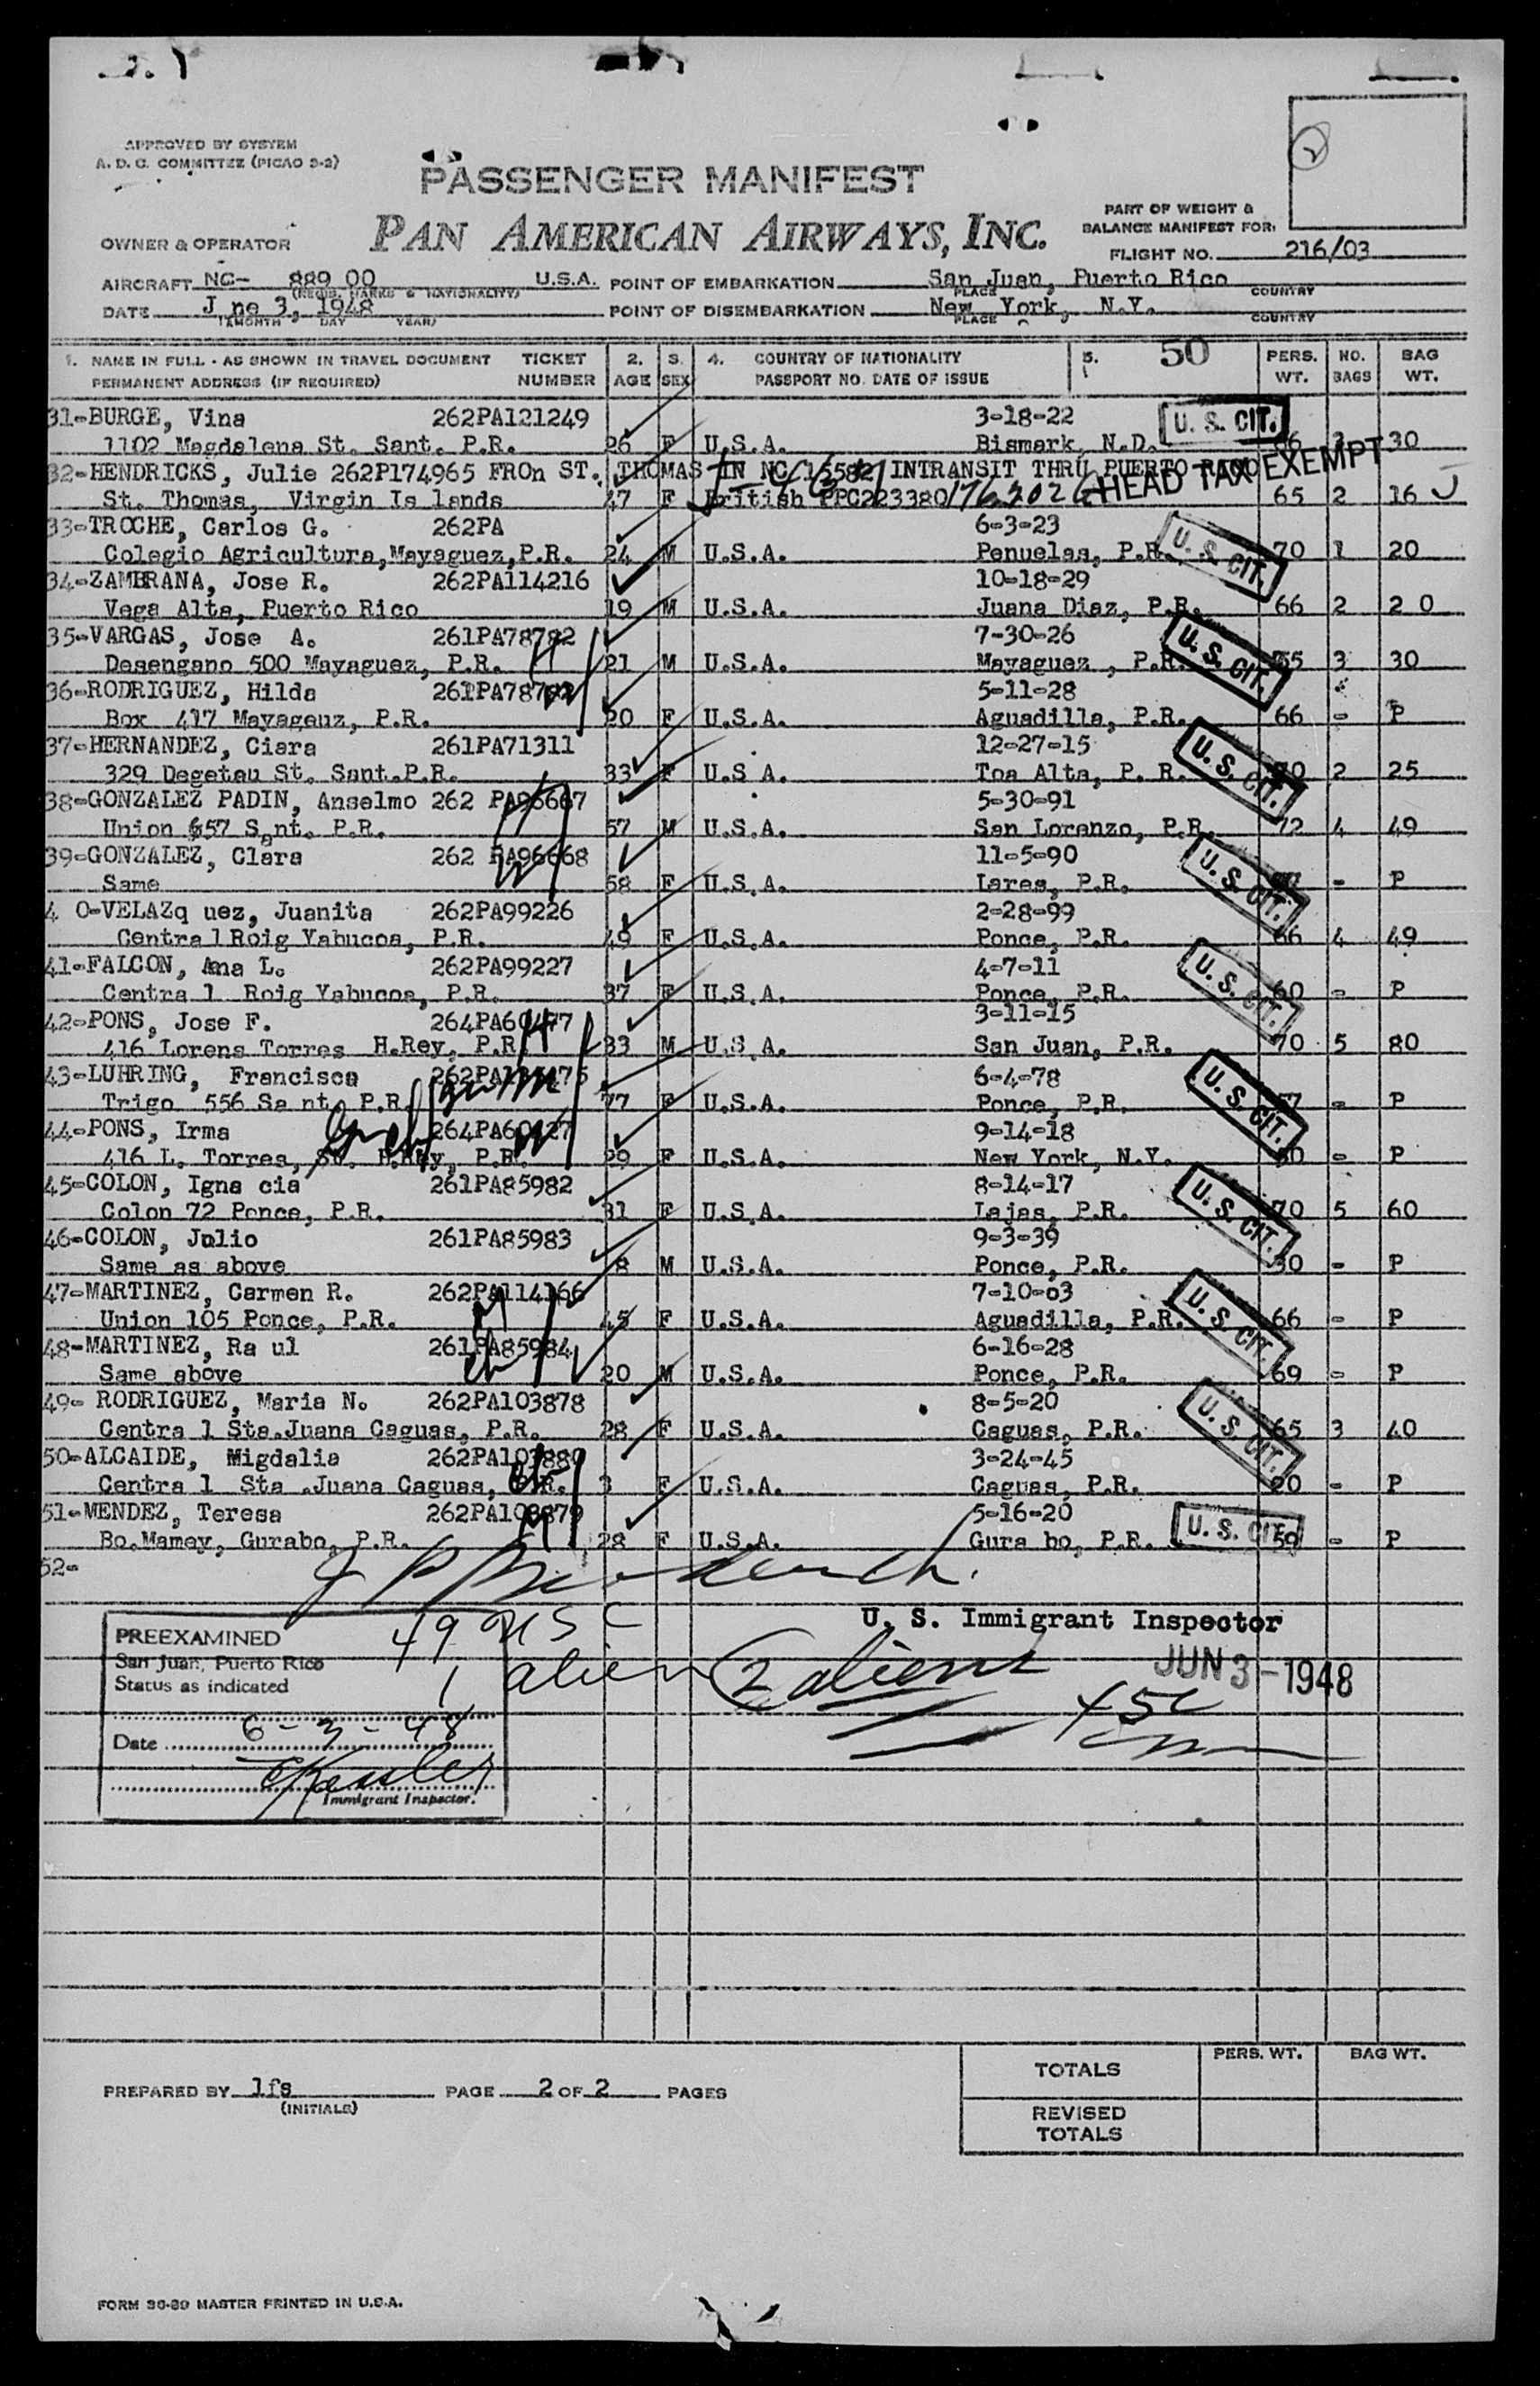 APPROVED BY SYSTEM
A. D. C. COMMITTEE (PICAO 9-2)
PASSENGER MANIFEST
PAN AMERICAN AIRWAYS, INC.
2
PART OF WEIGHT &
BALANCE MANIFEST FOR:
OWNER & OPERATOR
FLIGHT NO. 216/03
AIRCRAFT NC- 889 00 U.S.A. POINT OF EMBARKATION San Juan, Puerto Rico
(REGIS. MARKS & NATIONALITY) PLACE COUNTRY
DATE J ne 3, 1948 POINT OF DISEMBARKATION New York, N.Y.
(MONTH DAY YEAR) PLACE COUNTRY
1. NAME IN FULL - AS SHOWN IN TRAVEL DOCUMENT TICKET 2. 3. 4. COUNTRY OF NATIONALITY 5. 50 PERS. NO. BAG
PERMANENT ADDRESS (IF REQUIRED) NUMBER AGE SEX PASSPORT NO. DATE OF ISSUE WT. BAGS WT.
31-BURGE, Vina 262PA121249 3-18-22 U. S. CIT.
1102 Magdalena St. Sant. P.R. 26 F U.S.A. Bismark, N.D. 66 30
32-HENDRICKS, Julie 262P174965 FROn ST. THOMAS IN NC 15582 INTRANSIT THRU PUERTO RICO HEAD TAX EXEMPT
St. Thomas, Virgin Is lands 47 F British PPC223380 65 2 16
33-TROCHE, Carlos G. 262PA 6-3-23 U. S. CIT.
Colegio Agricultura,Mayaguez,P.R. 24 M U.S.A. Penuelas, P.R. 70 1 20
34-ZAMBRANA, Jose R. 262PA114216 10-18-29
Vega Alta, Puerto Rico 19 M U.S.A. Juana Diaz, P.R. 66 2 2 0
35-VARGAS, Jose A. 261PA78782 7-30-26 U. S. CIT.
Desengano 500 Mayaguez, P.R. 21 M U.S.A. Mayaguez , P.R. 3 30
36-RODRIGUEZ, Hilda 5-11-28
Box 417 Mayageuz, P.R. 20 F U.S.A. Aguadilla, P.R. 66 - P
37-HERNANDEZ, Ciara 261PA71311 12-27-15 U. S. CIT.
329 Degetau St. Sant.P.R. 33 F U.S A. Toa Alta, P. R. 70 2 25
38-GONZALEZ PADIN, Anselmo 262 PA96667 5-30-91
Union 657 S nt. P.R. 57 M U.S.A. San Lorenzo, P.R. 72 4 49
39-GONZALEZ, Clara 262 PA96668 11-5-90 U. S. CIT.
Same 58 F U.S.A. Lares, P.R. - P
4 0-VELAZq uez, Juanita 262PA99226 2-28-99
Centra l Roig Yabucoa, P.R. 49 F U.S.A. Ponce, P.R. 66 4 49
41-FALCON, Ana L. 262PA99227 4-7-11 U. S. CIT.
Centra l Roig Yabucoa, P.R. 37 F U.S.A. Ponce, P.R. 60 - P
42-PONS, Jose F. 264PA60477 3-11-15
416 Lorens Torres H.Rey, P.R. 33 M U.S A. San Juan, P.R. 70 5 80
43-LUHRING, Francisca 6-4-78 U. S. CIT.
Trigo 556 Sa nt. P.R. 77 F U.S.A. Ponce, P.R. - P
44-PONS, Irma 9-14-18
416 L. Torres, P.R. 29 F U.S.A. New York, N.Y. - P
45-COLON, Igna cia 261PA85982 8-14-17 U. S. CIT.
Colon 72 Ponce, P.R. 31 F U.S.A. Lajas, P.R. 70 5 60
46-COLON, Julio 261PA85983 9-3-39
Same as above 8 M U.S.A. Ponce, P.R. - P
47-MARTINEZ, Carmen R. 262PA114166 7-10-03 U. S. CIT.
Union 105 Ponce, P.R. 45 F U.S.A. Aguadilla, P.R. 66 - P
48-MARTINEZ, Ra ul 261PA85984 6-16-28
Same above 20 M U.S.A. Ponce, P.R. 69 - P
49- RODRIGUEZ, Maria N. 262PA103878 8-5-20 U. S. CIT.
Centra l Sta.Juana Caguas, P.R. 28 F U.S.A. Caguas, P.R. 65 3 40
50-ALCAIDE, Migdalia 262PA103880 3-24-45
Centra l Sta .Juana Caguas, P.R. 3 F U.S.A. Caguas, P.R. 20 - P
51-MENDEZ, Teresa 262PA103879 5-16-20 U. S. CIT.
Bo.Mamey, Gurabo, P.R. 28 F U.S.A. Gura bo, P.R. 59 - P
52-
49 USC U. S. Immigrant Inspector
PREEXAMINED
San Juan, Puerto Rico
Status as indicated 1 alien 2 aliens JUN 3-1948
Date 6-3-48
Kessler
Immigrant Inspector.
TOTALS PERS. WT. BAG WT.
PREPARED BY lfs PAGE 2 OF 2 PAGES
(INITIALS)
REVISED
TOTALS
FORM 36-80 MASTER PRINTED IN U.S.A.